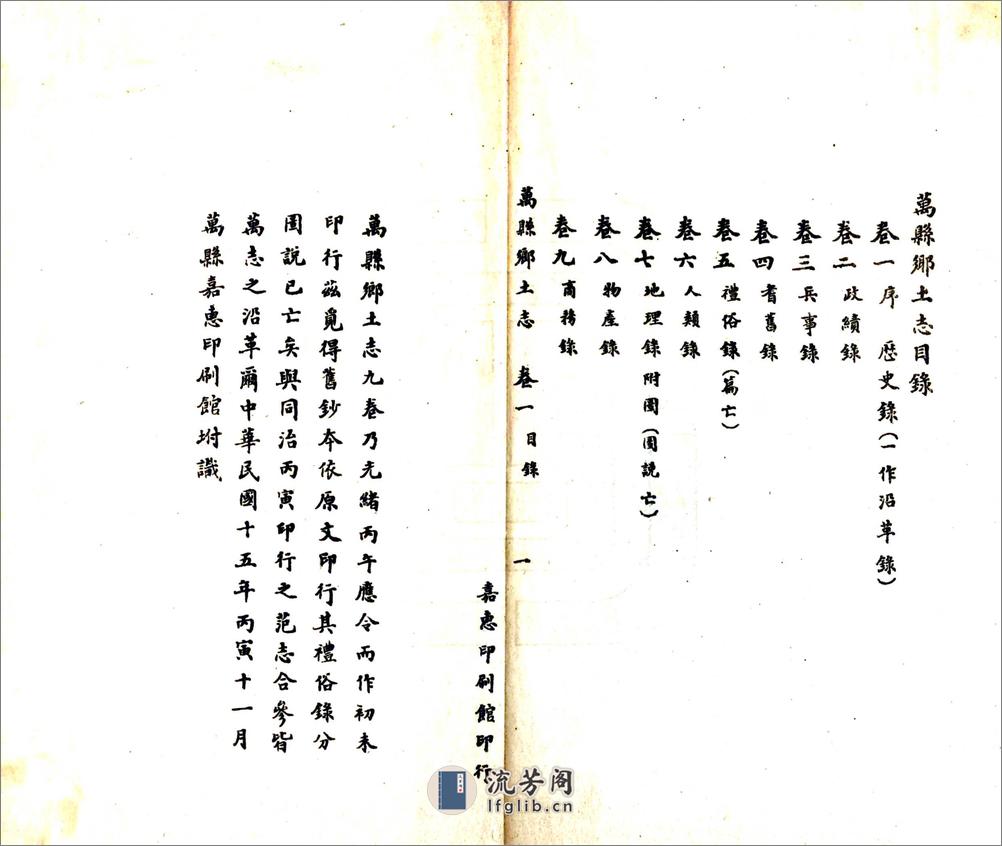 萬縣鄉土志目錄
卷一序　歷史錄(一作沿革錄)
卷二政績錄
卷三兵事錄
卷四耆舊錄
卷五禮俗錄(篇亡)
卷六人類錄
卷七地理錄附圖(圖說亡)
卷八物產錄
卷九商務錄
萬縣鄉土志　卷一目錄　一
嘉惠印刷館印行
萬縣鄉土志九卷乃光緒丙午應令而作初未
印行茲覓得舊鈔本依原文印行其禮俗錄分
圖說已亡矣與同治丙寅印行之范志合參皆
萬志之沿革爾中華民國十五年丙寅十一月
萬縣嘉惠印刷館坿識
流芳阁
lfglib.cn